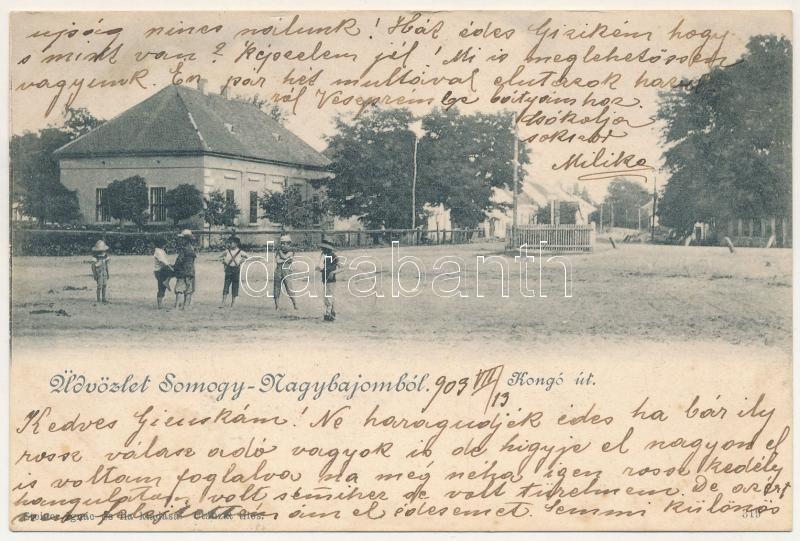 ujság nincs nálunk! Hát édes Gizikém hogy
s mint van? Képzelem jól! Mi is meglehetőssen
vagyunk. En pár hét multával elutazok
ról Veszprémbe bátyámhoz.
Csókolja
sokszor
Milike
darabanth
Üdvözlet Somogy-Nagybajomból. 903 VIII/13 Kongó út.
Kedves Gicuskám! Ne haragudjék édes ha bár ily
rossz válasz adó vagyok is de higyje el nagyon el
is voltam foglalva na meg néha igen rossz kedély
hangulatom volt semihez se volt türelmem. De azért
nem felejtettem ám el édesemet. Semmi különös